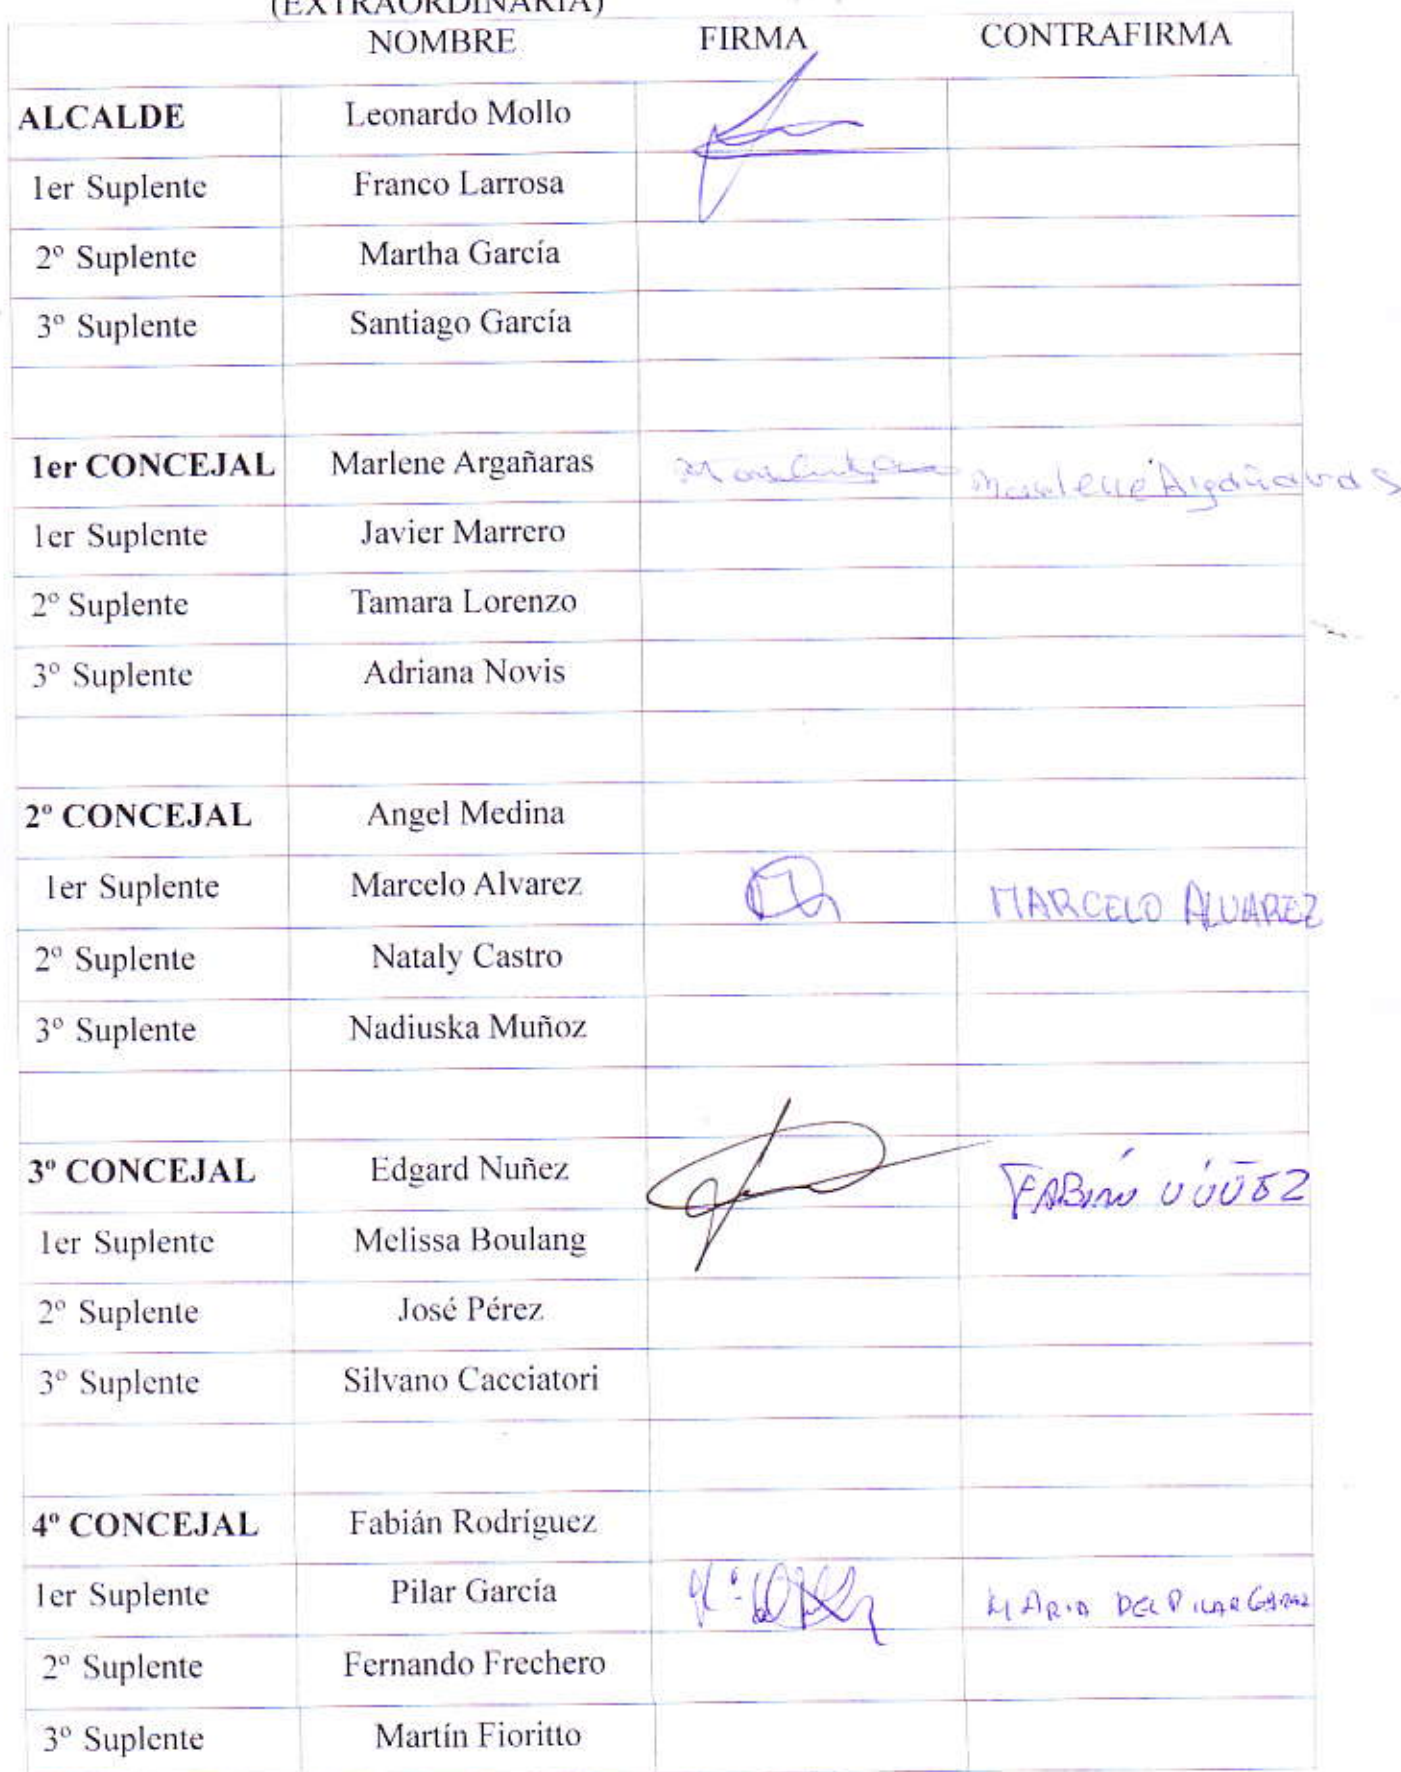 (EXTRAORDINARIA)
NOMBRE FIRMA CONTRAFIRMA
ALCALDE Leonardo Mollo
1er Suplente Franco Larrosa
2º Suplente Martha García
3º Suplente Santiago García
1er CONCEJAL Marlene Argañaras Marlene Argañaras
1er Suplente Javier Marrero
2º Suplente Tamara Lorenzo
3º Suplente Adriana Novis
2º CONCEJAL Angel Medina
1er Suplente Marcelo Alvarez MARCELO ALVAREZ
2º Suplente Nataly Castro
3º Suplente Nadiuska Muñoz
3º CONCEJAL Edgard Nuñez FABIÁN NÚÑEZ
1er Suplente Melissa Boulang
2º Suplente José Pérez
3º Suplente Silvano Cacciatori
4º CONCEJAL Fabián Rodríguez
1er Suplente Pilar García MARIA DEL PILAR GARCIA
2º Suplente Fernando Frechero
3º Suplente Martín Fioritto